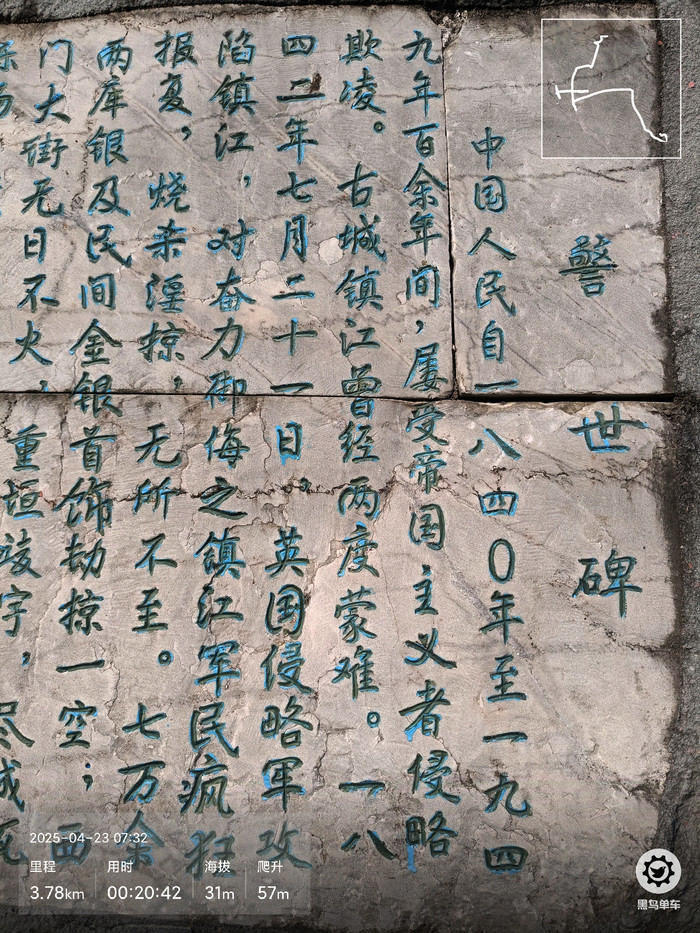 警世碑
中国人民自一八四〇年至一九四
九年百余年间，屡受帝国主义者侵略
欺凌。古城镇江曾经两度蒙难。一八
四二年七月二十一日，英国侵略军攻
陷镇江，对奋力御侮之镇江军民疯狂
报复，烧杀淫掠，无所不至。七万余
两库银及民间金银首饰劫掠一空；西
门大街无日不火，重垣峻宇，尽成瓦
2025-04-23 07:32
里程 用时 海拔 爬升
3.78km 00:20:42 31m 57m
黑鸟单车